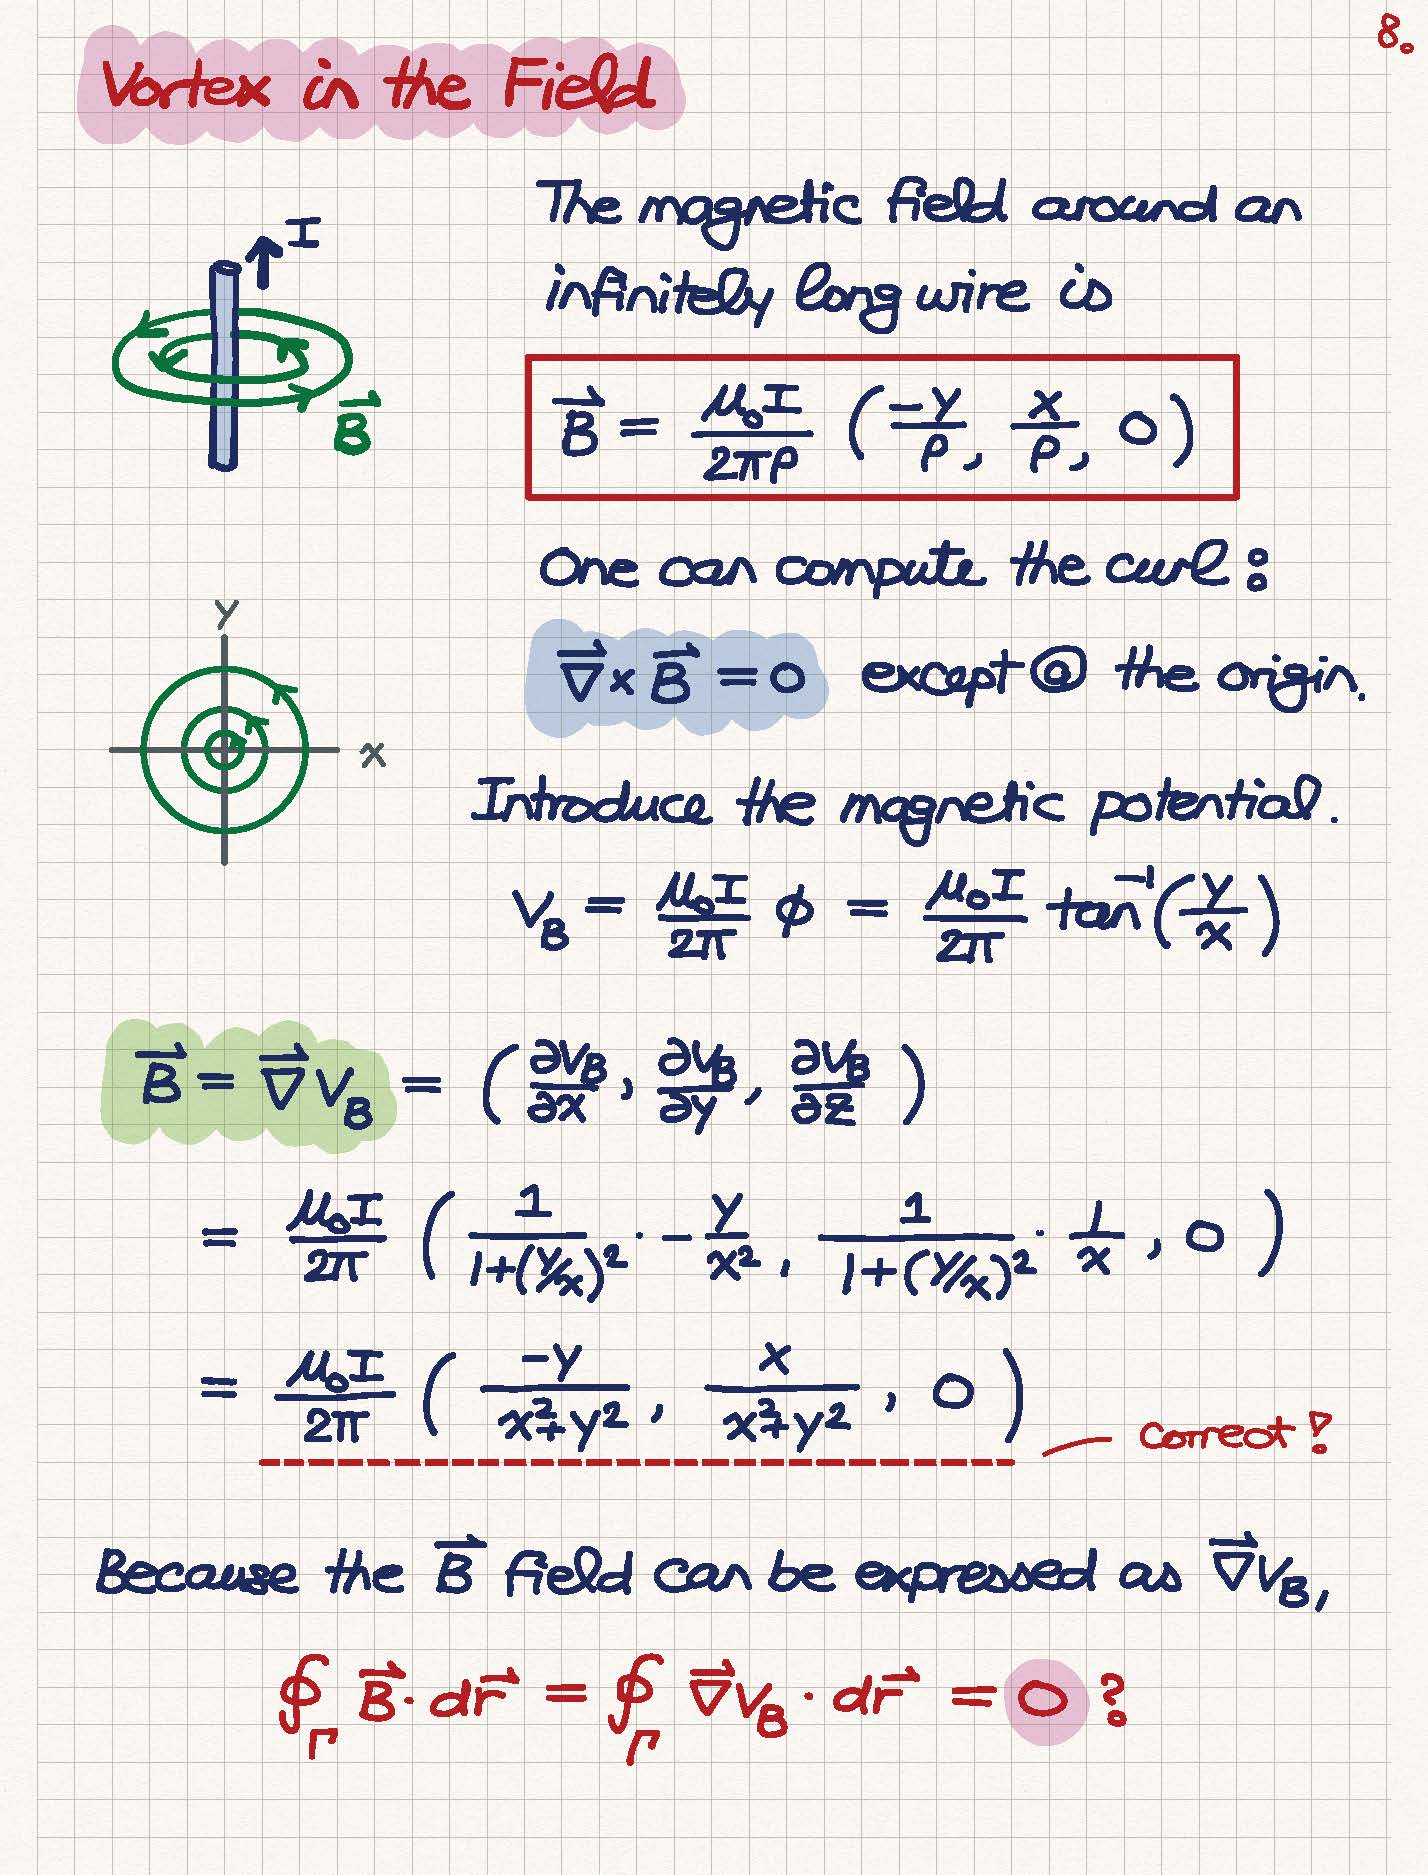 8.
Vortex in the Field
I
B⃗
The magnetic field around an
infinitely long wire is
B⃗ = μ₀I/2πρ (-y/ρ, x/ρ, 0)
One can compute the curl:
∇⃗×B⃗ = 0 except @ the origin.
y
x
Introduce the magnetic potential.
V_B = μ₀I/2π ϕ = μ₀I/2π tan⁻¹(y/x)
B⃗ = ∇⃗V_B = (∂V_B/∂x, ∂V_B/∂y, ∂V_B/∂z)
= μ₀I/2π (1/1+(y/x)² · -y/x², 1/1+(y/x)² · 1/x, 0)
= μ₀I/2π (-y/x²+y², x/x²+y², 0)
correct!
Because the B⃗ field can be expressed as ∇⃗V_B,
∮_Γ B⃗·dr⃗ = ∮_Γ ∇⃗V_B·dr⃗ = 0?